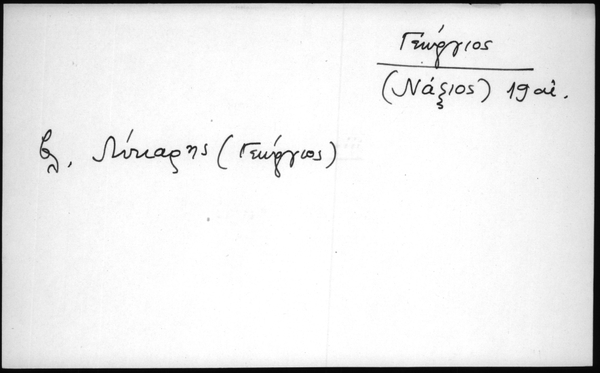 Γεώργιος
(Νάξιος) 19 αἰ.
βλ. Λύκαρης (Γεώργιος)